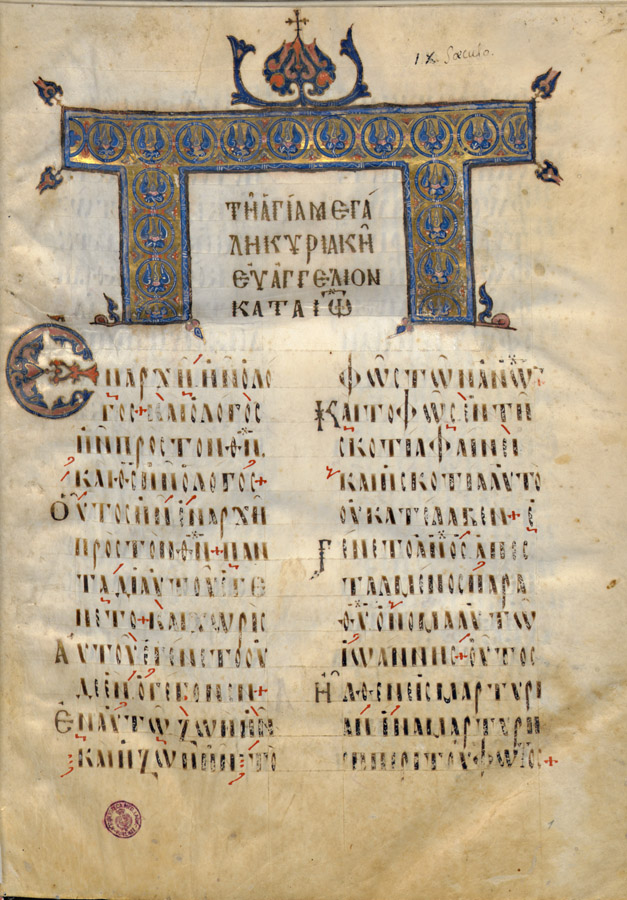 IX Sæculo.
ΤΗ ΑΓΙΑ ΜΕΓΑ
ΛΗ ΚΥΡΙΑΚΗ
ΕΥΑΓΓΕΛΙΟΝ
ΚΑΤΑ ΙΩ
ἘΝ ΑΡΧΗ ΗΝ Ο ΛΟ
ΓΟΣ + ΚΑΙ Ο ΛΟΓΟΣ
ΗΝ ΠΡΟΣ ΤΟΝ ΘΝ.
ΚΑΙ ΘΣ ΗΝ Ο ΛΟΓΟΣ +
ΟΥΤΟΣ ΗΝ ΕΝ ΑΡΧΗ
ΠΡΟΣ ΤΟΝ ΘΝ + ΠΑΝ
ΤΑ ΔΙ ΑΥΤΟΥ ΕΓΕ
ΝΕΤΟ + ΚΑΙ ΧΩΡΙΣ
ΑΥΤΟΥ ΕΓΕΝΕΤΟ ΟΥ
ΔΕ ΕΝ Ο ΓΕΓΟΝΕΝ +
ΕΝ ΑΥΤΩ ΖΩΗ ΗΝ
ΚΑΙ Η ΖΩΗ ΗΝ ΤΟ
ΦΩΣ ΤΩΝ ΑΝΩΝ
ΚΑΙ ΤΟ ΦΩΣ ΕΝ ΤΗ
ΣΚΟΤΙΑ ΦΑΙΝΕΙ
ΚΑΙ Η ΣΚΟΤΙΑ ΑΥΤΟ
ΟΥ ΚΑΤΕΛΑΒΕΝ + Ε
ΓΕΝΕΤΟ ΑΝΟΣ ΑΠΕΣ
ΤΑΛΜΕΝΟΣ ΠΑΡΑ
ΘΥ ΟΝΟΜΑ ΑΥΤΩ
ΙΩΑΝΝΗΣ + ΟΥΤΟΣ
ΗΛΘΕΝ ΕΙΣ ΜΑΡΤΥΡΙ
ΑΝ ΙΝΑ ΜΑΡΤΥΡΗ
ΣΗ ΠΕΡΙ ΤΟΥ ΦΩΤΟΣ +